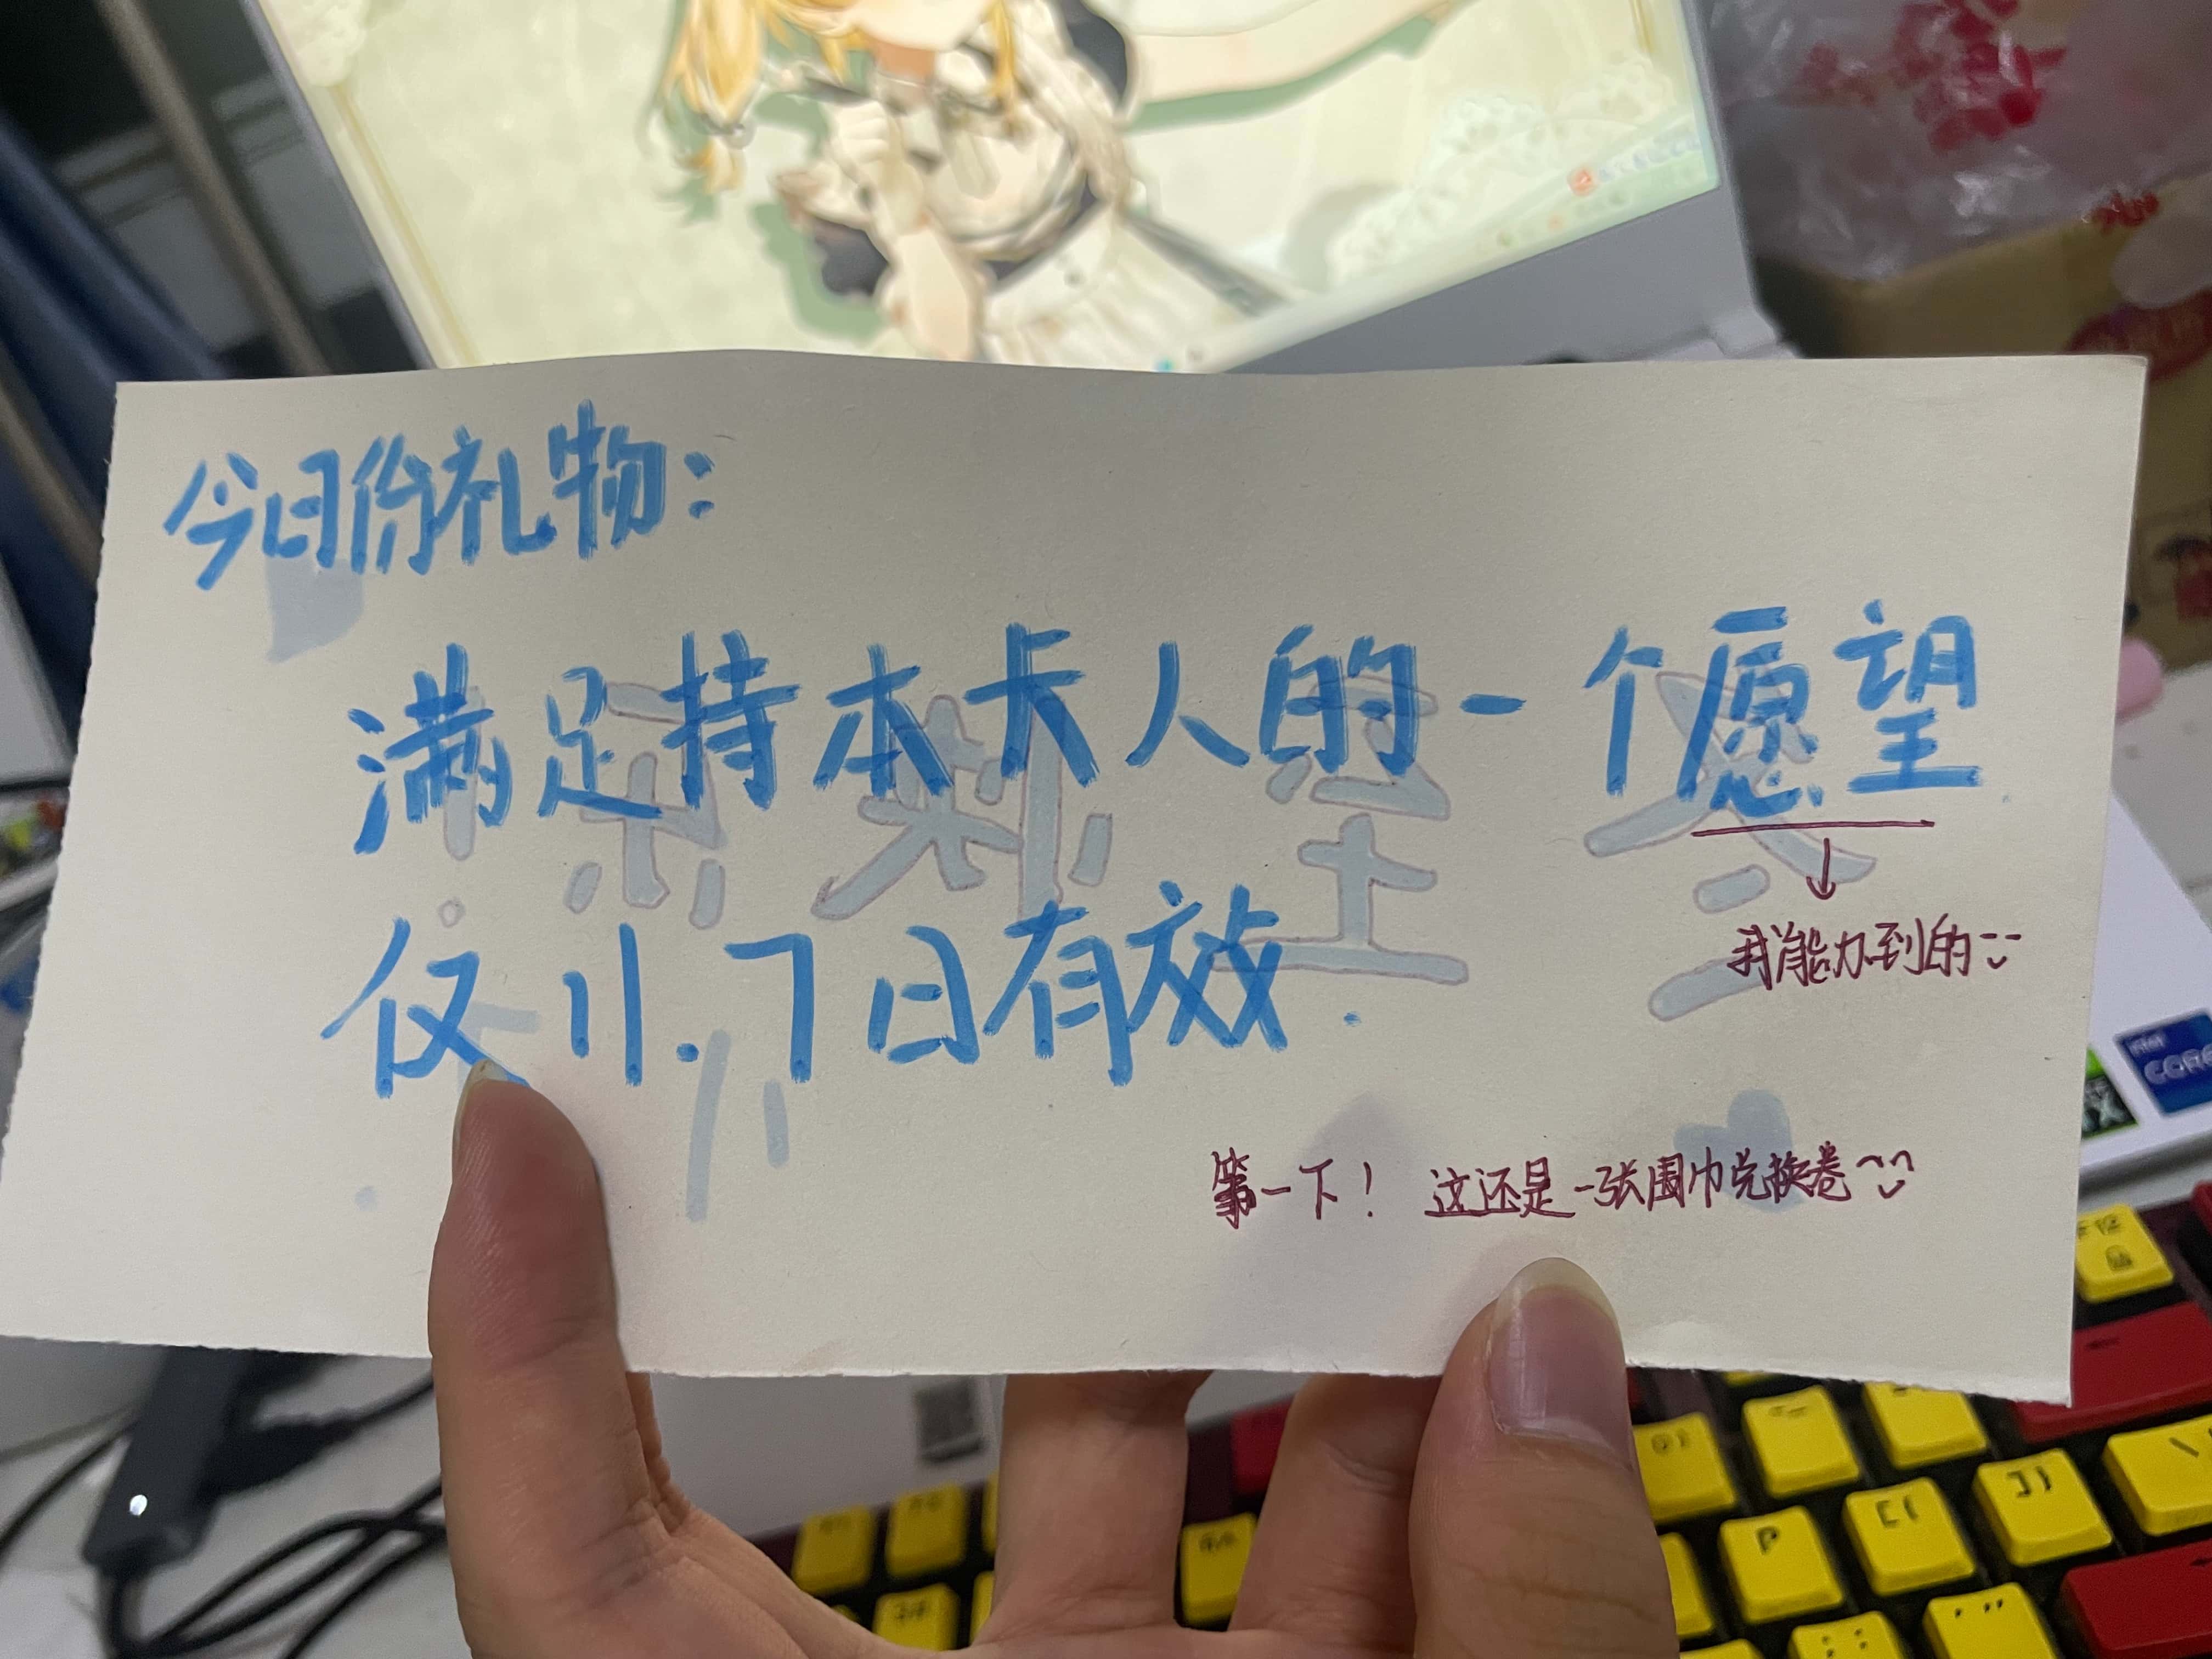 今日份礼物：
满足持本卡人的一个愿望
我能办到的
仅11.7日有效.
第一下！ 这还是一张围巾兑换卷~
intel
CORE
F12
P
[{
]}